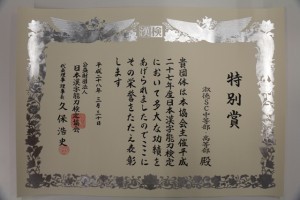 検
特別賞
淑徳SC中等部 高等部 殿
貴団体は本協会主催平成
二十七年度日本漢字能力検定
において多大な功績を
あげられましたのでここに
その栄誉をたたえ表彰
します
平成二十八年 三月三十日
公益財団法人
日本漢字能力検定協会
代表理事 理事長 久保浩史